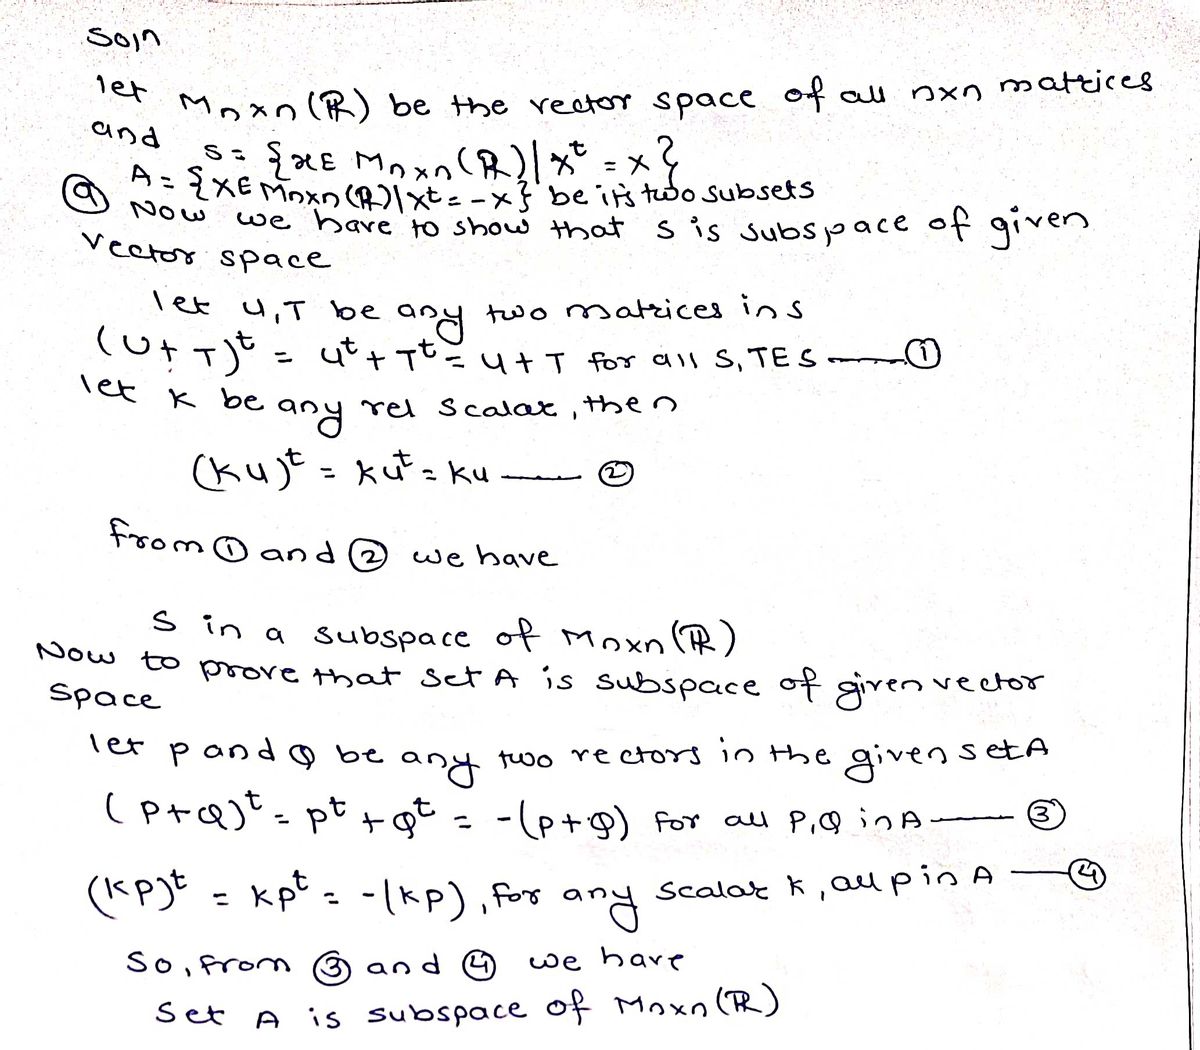 Soln
let Mnxn(ℝ) be the vector space of all nxn matrices
and S = {x∈ Mnxn(ℝ)| x^t = x}
A = {x∈Mnxn(ℝ)|x^t = -x} be it's two subsets
(a) Now we have to show that S is subspace of given
vector space
let U,T be any two matrices in S
(U+T)^t = U^t + T^t = U+T for all S,T∈S —— ①
let k be any rel scalar, then
(kU)^t = kU^t = kU —— ②
from ① and ② we have
S in a subspace of Mnxn(ℝ)
Now to prove that set A is subspace of given vector
space
let P and Q be any two vectors in the given set A
(P+Q)^t = P^t + Q^t = -(P+Q) for all P,Q in A —— ③
(kP)^t = kP^t = -(kP), for any scalar k, all P in A —— ④
So, from ③ and ④ we have
Set A is subspace of Mnxn(ℝ)